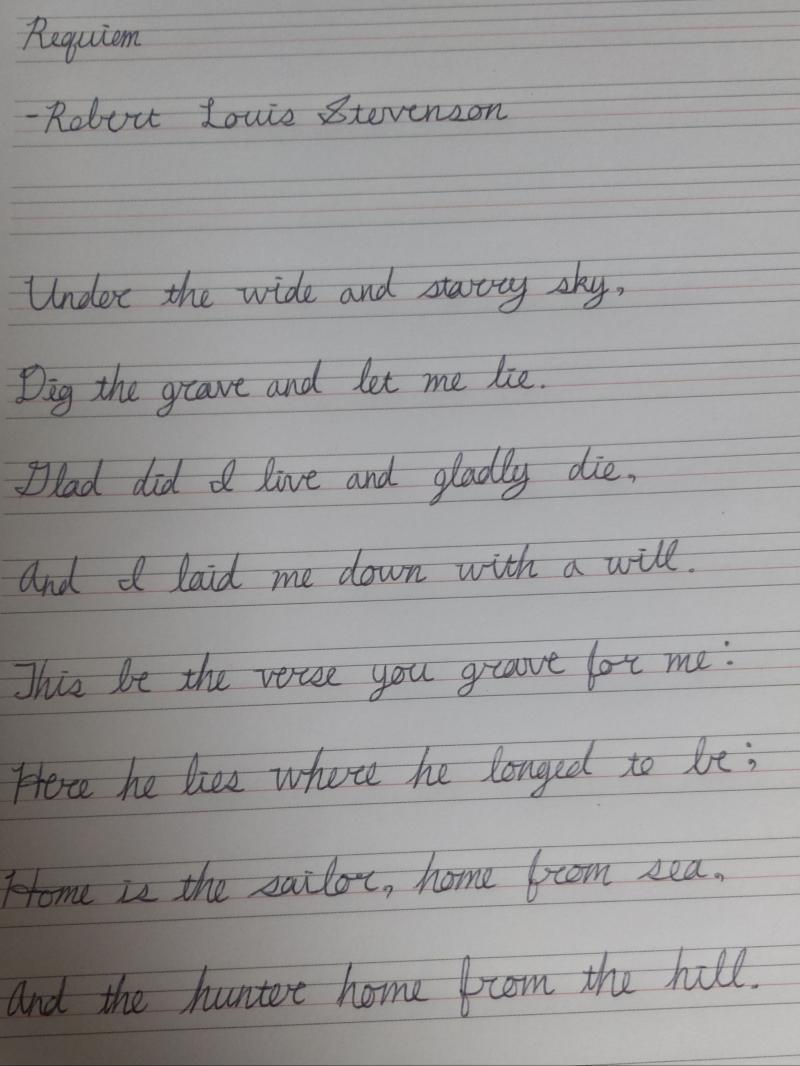 Requiem
-Robert Louis Stevenson
Under the wide and starry sky,
Dig the grave and let me lie.
Glad did I live and gladly die,
And I laid me down with a will.
This be the verse you grave for me:
Here he lies where he longed to be;
Home is the sailor, home from sea,
And the hunter home from the hill.